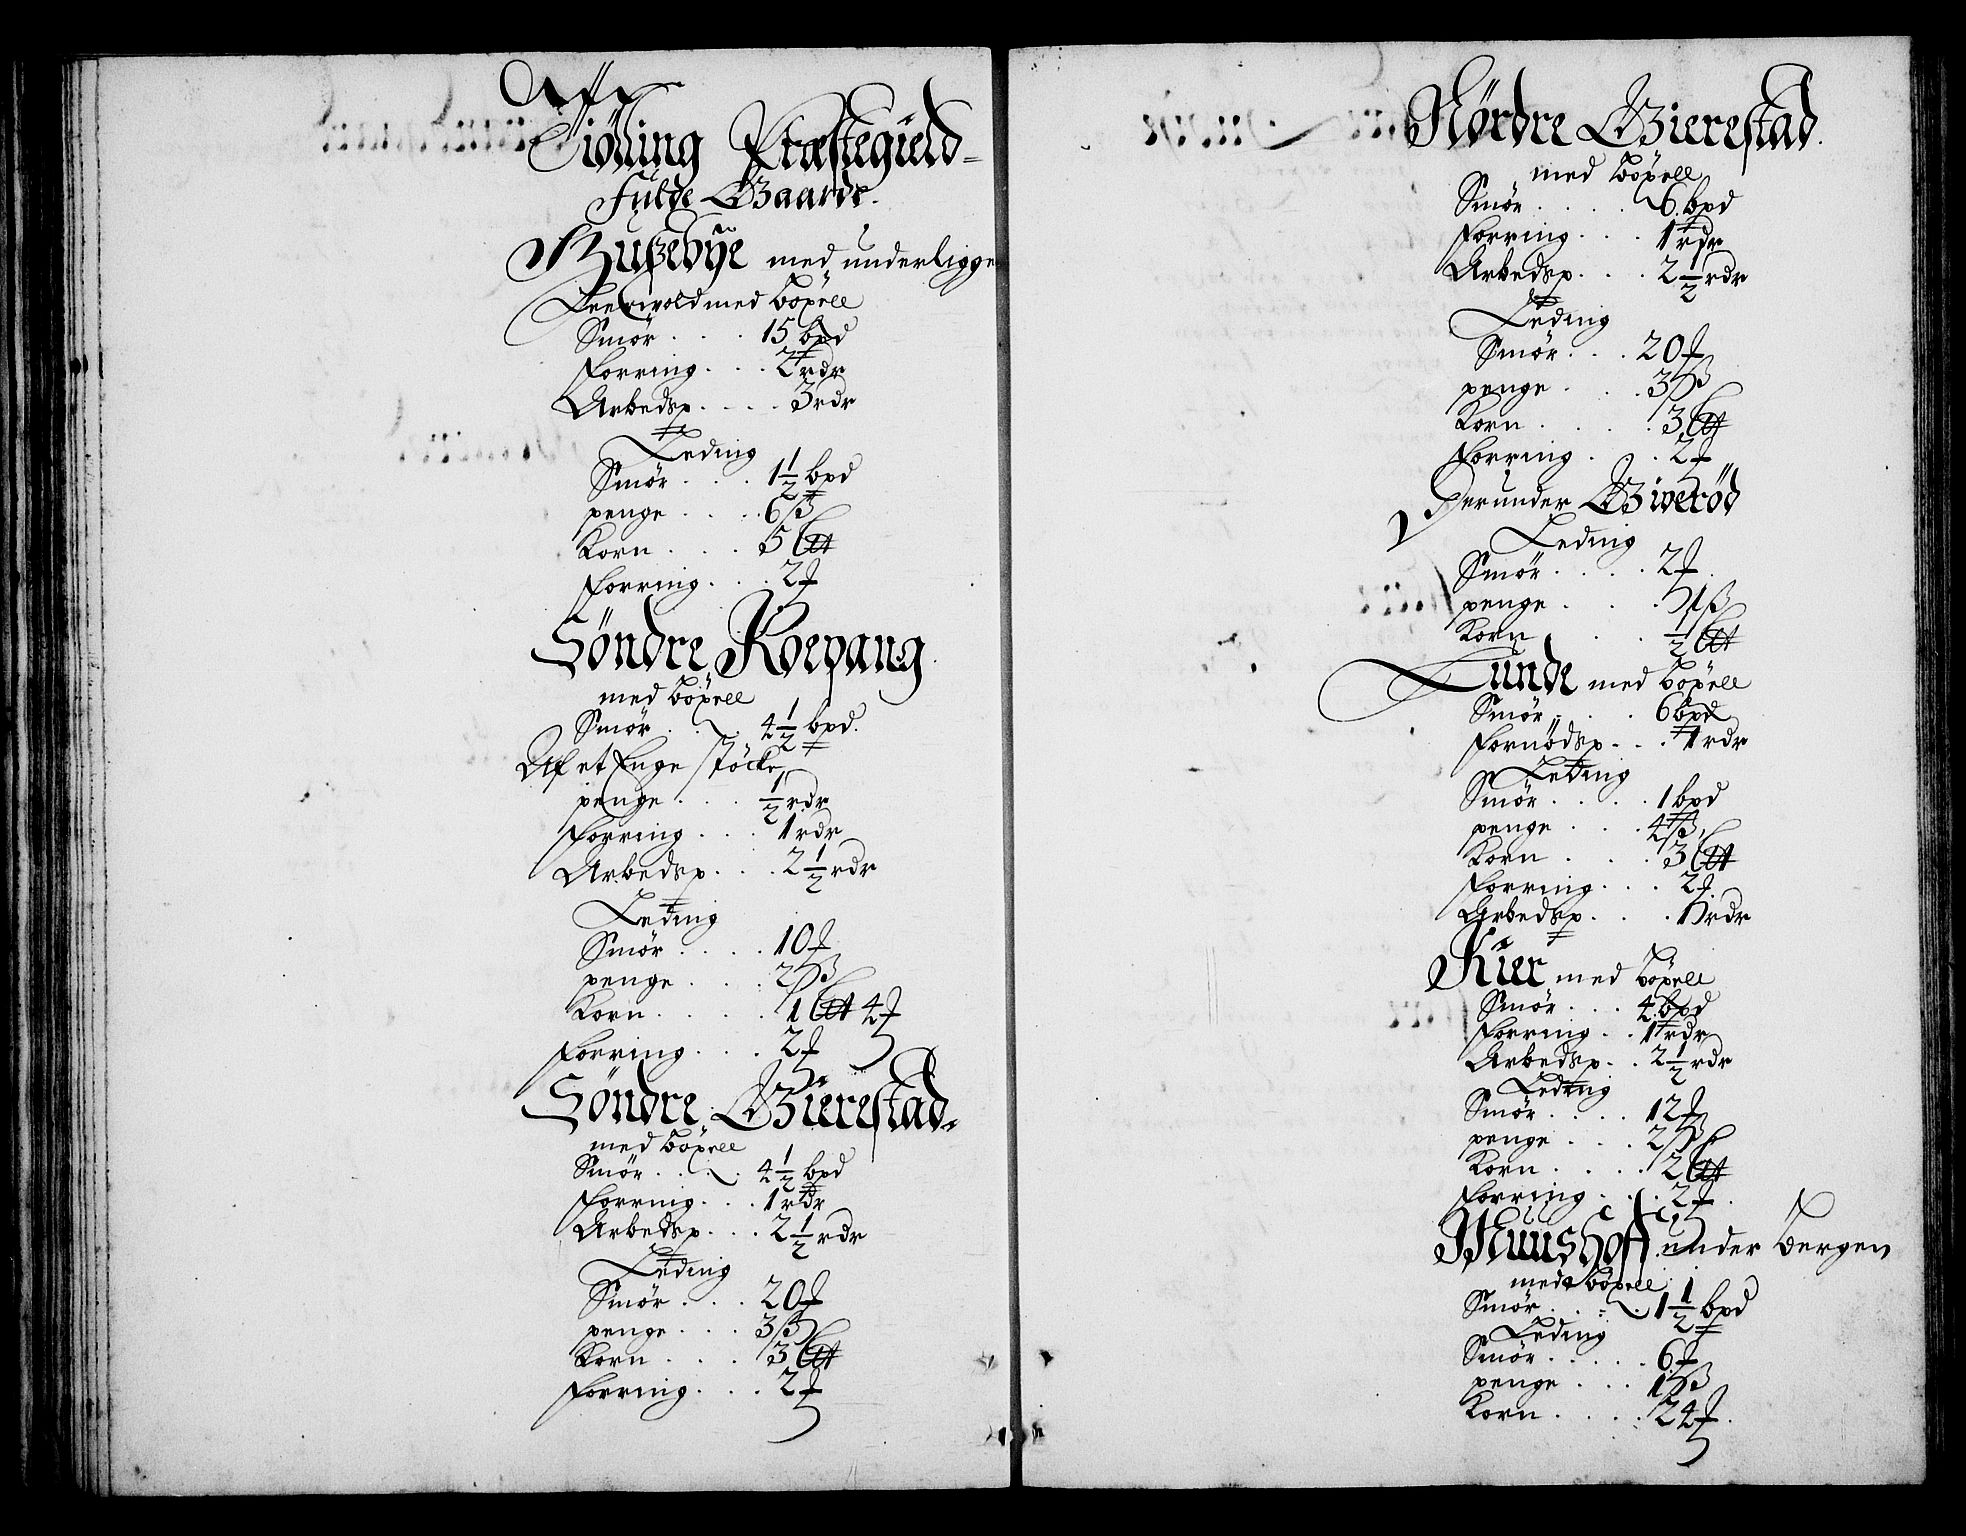 Tiølling Præstegield
Fulde Gaarde.
Hußebÿe med underligge
med böxell
Smör . . . . 15 bpd
Forring . . . 2 rdr
Arbedsp. . . . 3 rdr
Leding
Smör . . . 1 1/2 bpd
penge . . . 6 ß
Korn . . . 5 L℔
Forring . . . 2 ₰
Söndre Roepang
med böxell
Smör . . . 4 1/2 bpd.
Af et Enge støcke
penge . . . 1/2 rdr
Forring . . . 1 rdr
Arbedsp. . . . 2 1/2 rdr
Leding
Smör . . . . 10 ₰
penge . . . . 2 ß
Korn . . . . . 1 L℔ 4 ₰
Forring . . . . 2 ₰
Söndre Gierestad
med böxell
Smör . . . . 4 1/2 bpd
Forring . . . 1 rdr
Arbedsp. . . . 2 1/2 rdr
Leding
Smör . . . 20 ₰
penge . . . 3 ß
Korn . . . . 3 L℔
Forring . . . 2 ₰
Nørdre Gierestad.
med böxell
Smör . . . . 6 bpd
Forring . . . 1 rdr
Arbedsp. . . . 2 1/2 rdr
Leding
Smör . . . 20 ₰
penge . . . . 3 ß
Korn . . . . . 3 L℔
Forring . . . . 2 ₰
Derunder Giverød
Leding
Smör . . . . . 2 ₰
penge . . . . 1 ß
Korn . . . . 1/2 L℔
Lunde med böxell
Smör . . . . 6 bpd
Fornödsp. . . . 1 rdr
Leding
Smör . . . . . 1 bpd
penge . . . . 4 ß
Korn . . . . 3 L℔
Forring . . . . 2 ₰
Arbedsp. . . . 1 rdr
Kier med böxell
Smör . . . 4 bpd
Forring . . . 1 rdr
Arbedsp. . . 2 1/2 rdr
Leding
Smör . . . . 12 ₰
penge . . . . 2 ß
Korn . . . . . 2 L℔
Forring . . . . 2 ₰
Muushoff under bergen
med böxell
Smör . . . . 1 1/2 bpd
Leding
Smör . . . . . 6 ₰
penge . . . . 1 ß
Korn . . . . . 24 ₰